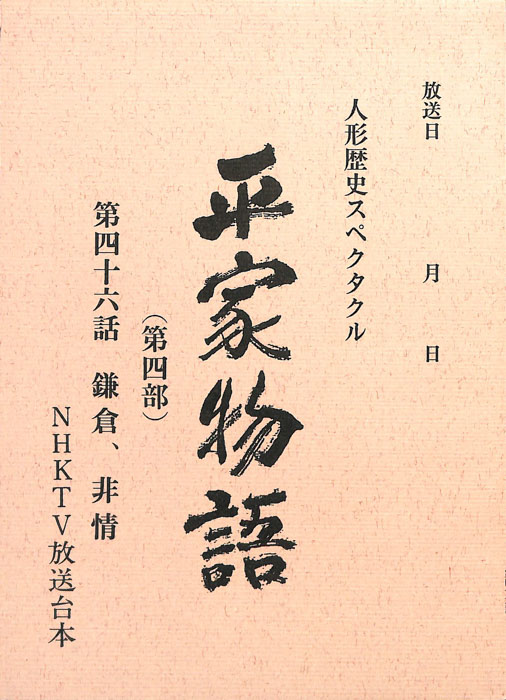 放送日　月　日
人形歴史スペクタクル
平家物語
（第四部）
第四十六話　鎌倉、非情
NHKTV放送台本